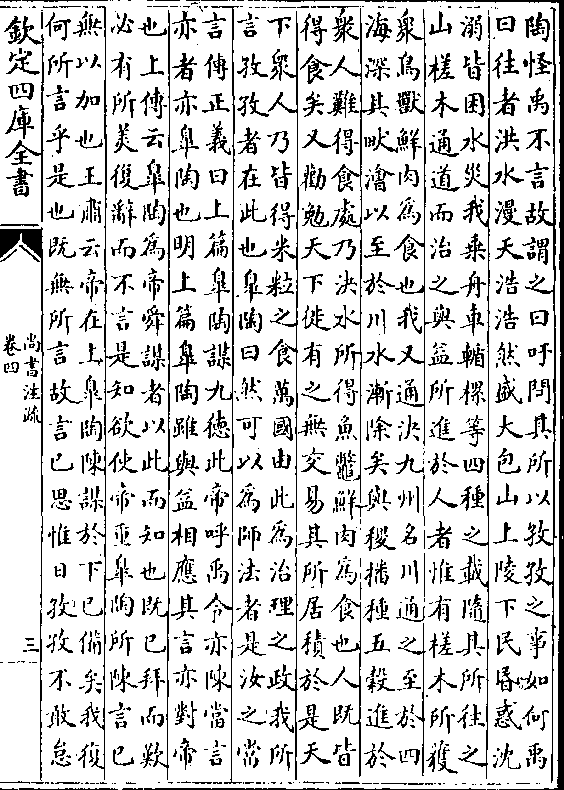 陶怪禹不言故謂之曰吁問其所以孜孜之事如何禹
曰往者洪水漫天浩浩然盛大包山上陵下民昬惑沈
溺皆困水災我乘舟車輴樏等四種之載隨其所往之
山槎木通道而治之與益所進於人者惟有槎木所獲
衆鳥獸鮮肉為食也我又通決九州名川通之至於四
海深其畎澮以至於川水漸除矣與稷播種五穀進於
衆人難得食處乃決水所得魚鼈鮮肉為食也人既皆
得食矣又勸勉天下徙有之無交易其所居積於是天
下衆人乃皆得米粒之食萬國由此為治理之政我所
言孜孜者在此也臯陶曰然可以為師法者是汝之當
言傳正義曰上篇臯陶謀九德此帝呼禹令亦陳當言
亦者亦臯陶也明上篇臯陶雖與益相應其言亦對帝
也上傳云臯陶為帝舜謀者以此而知也既已拜而歎
必有所美復辭而不言是知欲使帝重臯陶所陳言已
無以加也王肅云帝在上臯陶陳謀於下已備矣我復
何所言乎是也既無所言故言已思惟日孜孜不敢怠
欽定四庫全書
尚書注疏
卷四
三